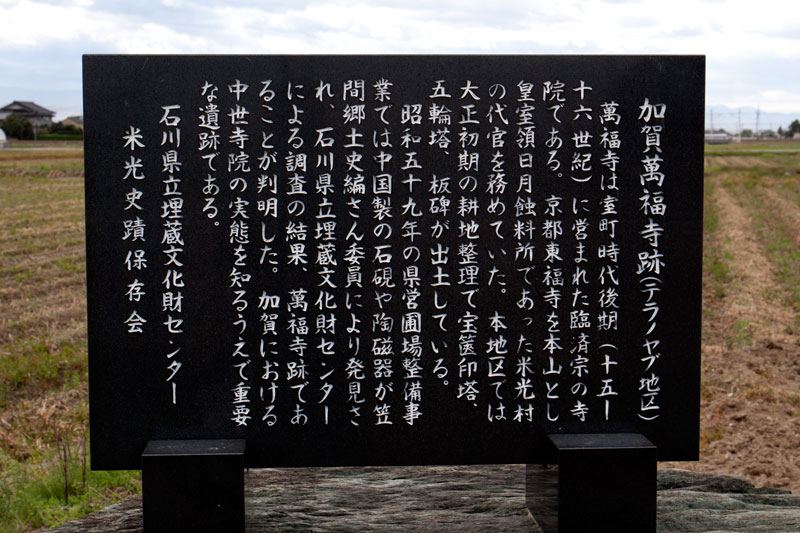 加賀萬福寺跡(テラノヤブ地区)
萬福寺は室町時代後期(十五ー
十六世紀)に営まれた臨済宗の寺
院である。京都東福寺を本山とし
皇室領日月蝕料所であった米光村
の代官を務めていた。本地区では
大正初期の耕地整理で宝篋印塔、
五輪塔、板碑が出土している。
昭和五十九年の県営圃場整備事
業では中国製の石硯や陶磁器が笠
間郷土史編さん委員により発見さ
れ、石川県立埋蔵文化財センター
による調査の結果、萬福寺跡であ
ることが判明した。加賀における
中世寺院の実態を知るうえで重要
な遺跡である。
石川県立埋蔵文化財センター
米光史蹟保存会